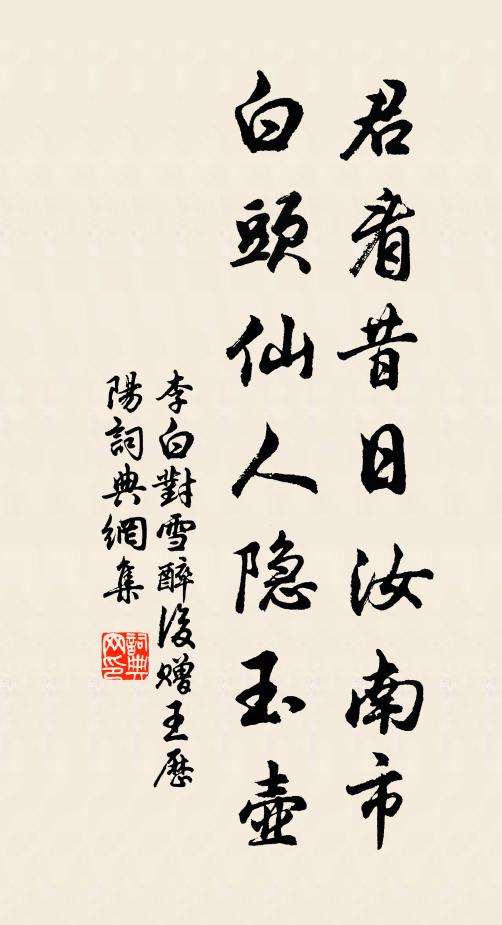 君看昔日汝南市
白頭仙人隐玉壺
李白對雪醉後贈王歷
陽詞典網集
詞典
网印